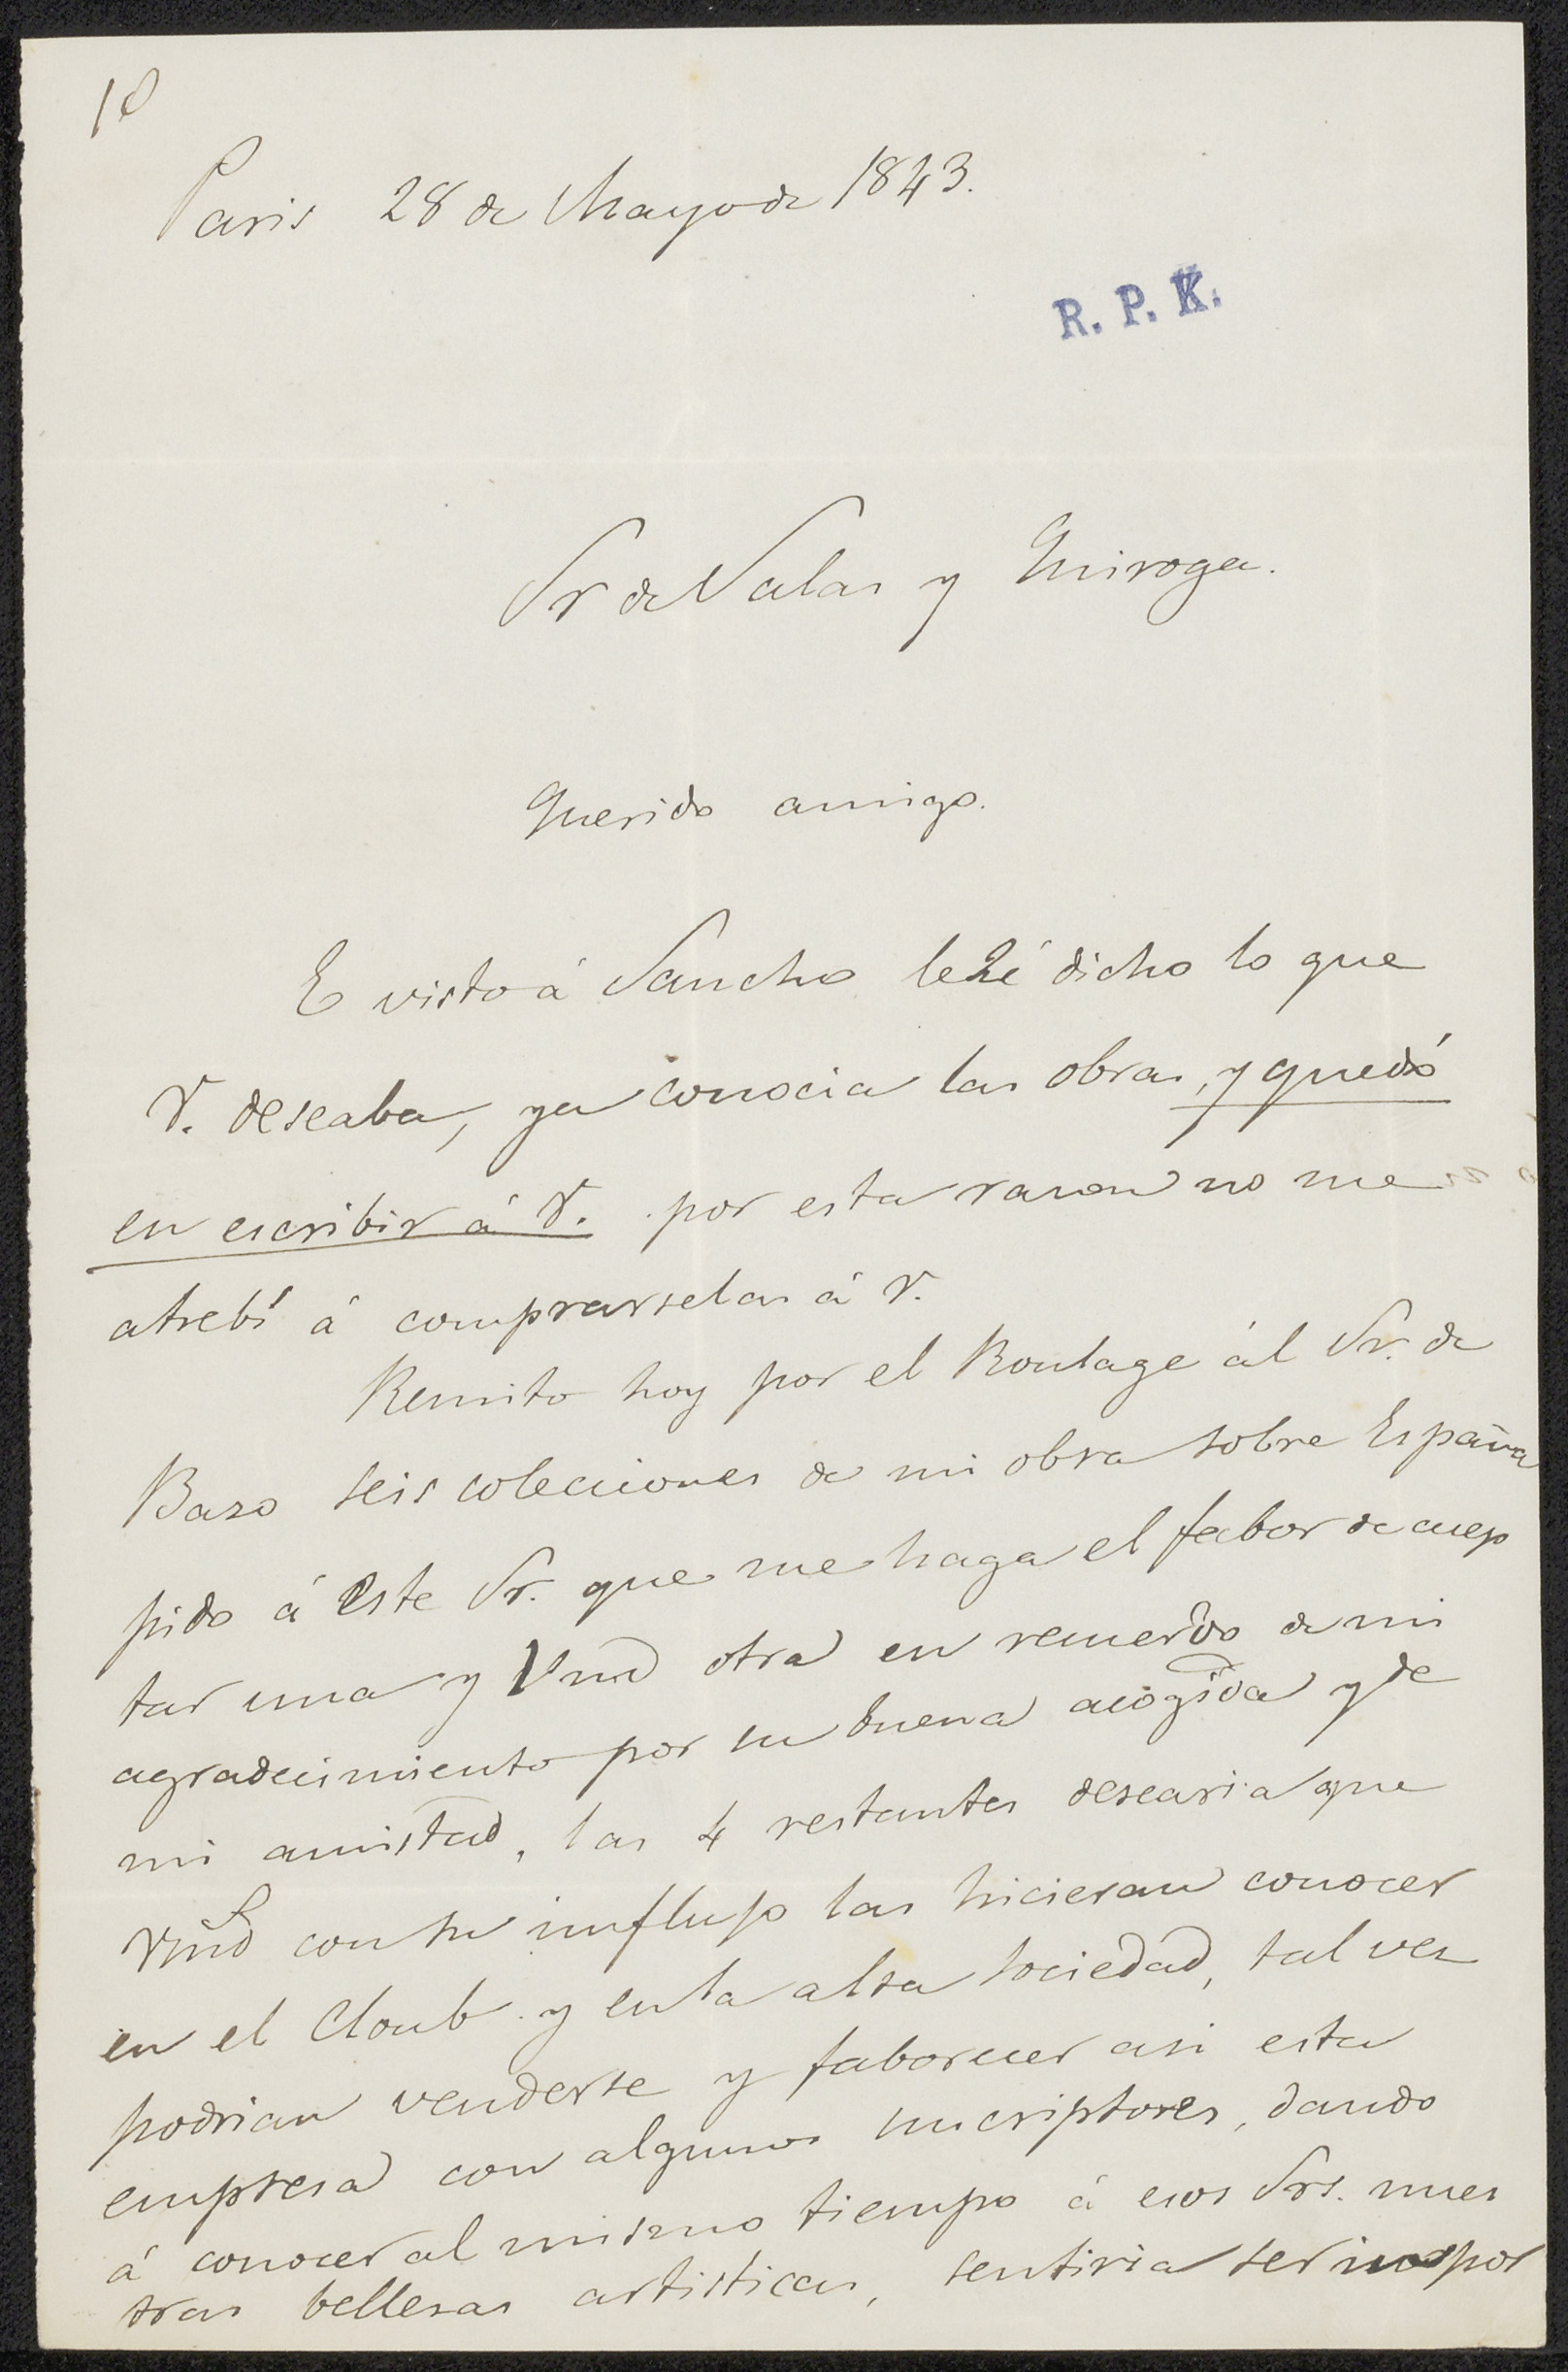 10
Paris 28 de Mayo de 1843.
R. P. K.
Sr de Salas y Quiroga.
Querido amigo.
E visto á Sancho le hé dicho lo que
V. deseaba, ya conocia las obras, y quedó
en escribir á V. por esta rason no me
atrebí á comprarselas á V.
Remito hoy por el Roulage ál Sr. de
Baso seis colecciones de mi obra sobre España
pido á este Sr. que me haga el fabor de acep
tar una y Vmd otra en recuerdo de mi
agradecimiento por su buena acogida y de
mi amistad, las 4 restantes desearia que
Vmd con su influjo las hicieran conocer
en el Cloub y en la alta sociedad, tal vez
podrian venderse y faborecer asi esta
empresa con algunos suscriptores, dando
á conocer al mismo tiempo á esos Srs. nues
tras bellesas artisticas, sentiria ser